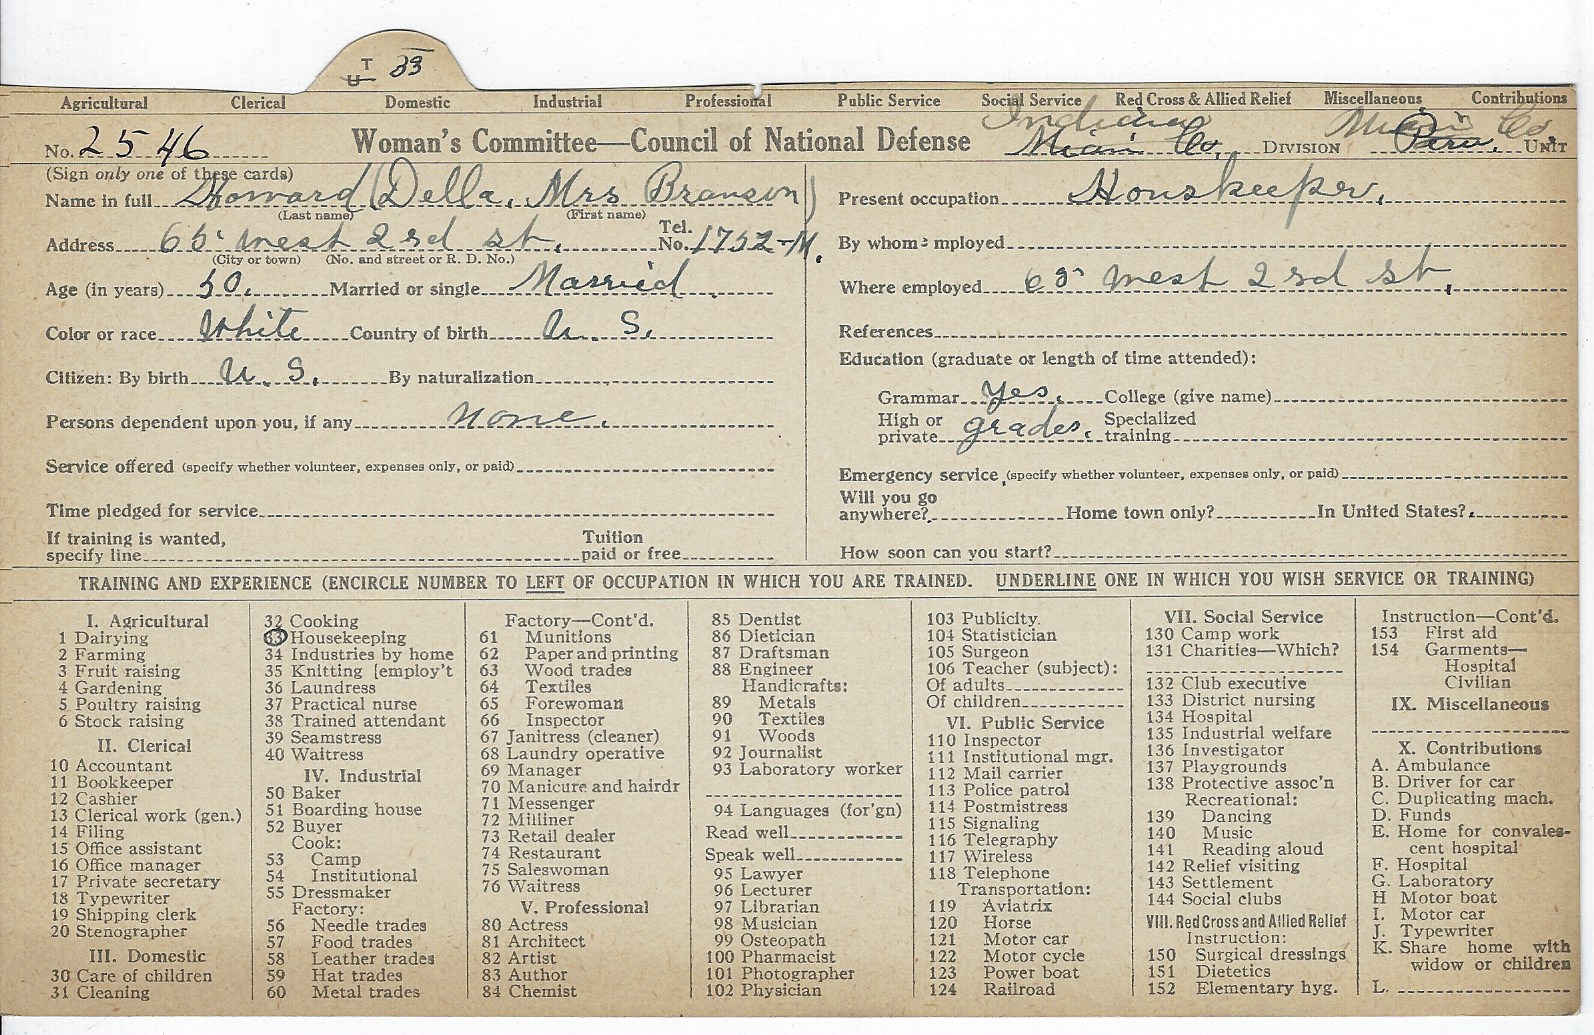 T
U 33
Agricultural Clerical Domestic Industrial Professional Public Service Social Service Red Cross & Allied Relief Miscellaneous Contributions
No. 2546 Woman's Committee—Council of National Defense Indiana Miami Co. DIVISION Miami Co. Peru. UNIT
(Sign only one of these cards)
Name in full Howard (Della, Mrs Branson)
(Last name) (First name)
Address 65 West 23rd st. Tel. No. 1752-M.
(City or town) (No. and street or R. D. No.)
Age (in years) 50. Married or single Married.
Color or race White Country of birth U. S.
Citizen: By birth U. S. By naturalization
Persons dependent upon you, if any None.
Service offered (specify whether volunteer, expenses only, or paid)
Time pledged for service
If training is wanted, specify line Tuition paid or free
Present occupation Houskeeper.
By whom employed
Where employed 65 West 23rd st.
References
Education (graduate or length of time attended):
Grammar Yes. College (give name)
High or private grades. Specialized training
Emergency service (specify whether volunteer, expenses only, or paid)
Will you go anywhere? Home town only? In United States?
How soon can you start?
TRAINING AND EXPERIENCE (ENCIRCLE NUMBER TO LEFT OF OCCUPATION IN WHICH YOU ARE TRAINED. UNDERLINE ONE IN WHICH YOU WISH SERVICE OR TRAINING)
I. Agricultural
1 Dairying
2 Farming
3 Fruit raising
4 Gardening
5 Poultry raising
6 Stock raising
II. Clerical
10 Accountant
11 Bookkeeper
12 Cashier
13 Clerical work (gen.)
14 Filing
15 Office assistant
16 Office manager
17 Private secretary
18 Typewriter
19 Shipping clerk
20 Stenographer
III. Domestic
30 Care of children
31 Cleaning
32 Cooking
33 Housekeeping
34 Industries by home
35 Knitting [employ't
36 Laundress
37 Practical nurse
38 Trained attendant
39 Seamstress
40 Waitress
IV. Industrial
50 Baker
51 Boarding house
52 Buyer
Cook:
53 Camp
54 Institutional
55 Dressmaker
Factory:
56 Needle trades
57 Food trades
58 Leather trades
59 Hat trades
60 Metal trades
Factory—Cont'd.
61 Munitions
62 Paper and printing
63 Wood trades
64 Textiles
65 Forewoman
66 Inspector
67 Janitress (cleaner)
68 Laundry operative
69 Manager
70 Manicure and hairdr
71 Messenger
72 Milliner
73 Retail dealer
74 Restaurant
75 Saleswoman
76 Waitress
V. Professional
80 Actress
81 Architect
82 Artist
83 Author
84 Chemist
85 Dentist
86 Dietician
87 Draftsman
88 Engineer
Handicrafts:
89 Metals
90 Textiles
91 Woods
92 Journalist
93 Laboratory worker
94 Languages (for'gn)
Read well
Speak well
95 Lawyer
96 Lecturer
97 Librarian
98 Musician
99 Osteopath
100 Pharmacist
101 Photographer
102 Physician
103 Publicity.
104 Statistician
105 Surgeon
106 Teacher (subject):
Of adults
Of children
VI. Public Service
110 Inspector
111 Institutional mgr.
112 Mail carrier
113 Police patrol
114 Postmistress
115 Signaling
116 Telegraphy
117 Wireless
118 Telephone
Transportation:
119 Aviatrix
120 Horse
121 Motor car
122 Motor cycle
123 Power boat
124 Railroad
VII. Social Service
130 Camp work
131 Charities—Which?
132 Club executive
133 District nursing
134 Hospital
135 Industrial welfare
136 Investigator
137 Playgrounds
138 Protective assoc'n
Recreational:
139 Dancing
140 Music
141 Reading aloud
142 Relief visiting
143 Settlement
144 Social clubs
VIII. Red Cross and Allied Relief
Instruction:
150 Surgical dressings
151 Dietetics
152 Elementary hyg.
Instruction—Cont'd.
153 First aid
154 Garments—
Hospital
Civilian
IX. Miscellaneous
X. Contributions
A. Ambulance
B. Driver for car
C. Duplicating mach.
D. Funds
E. Home for convales-
cent hospital
F. Hospital
G. Laboratory
H Motor boat
I. Motor car
J. Typewriter
K. Share home with
widow or children
L.